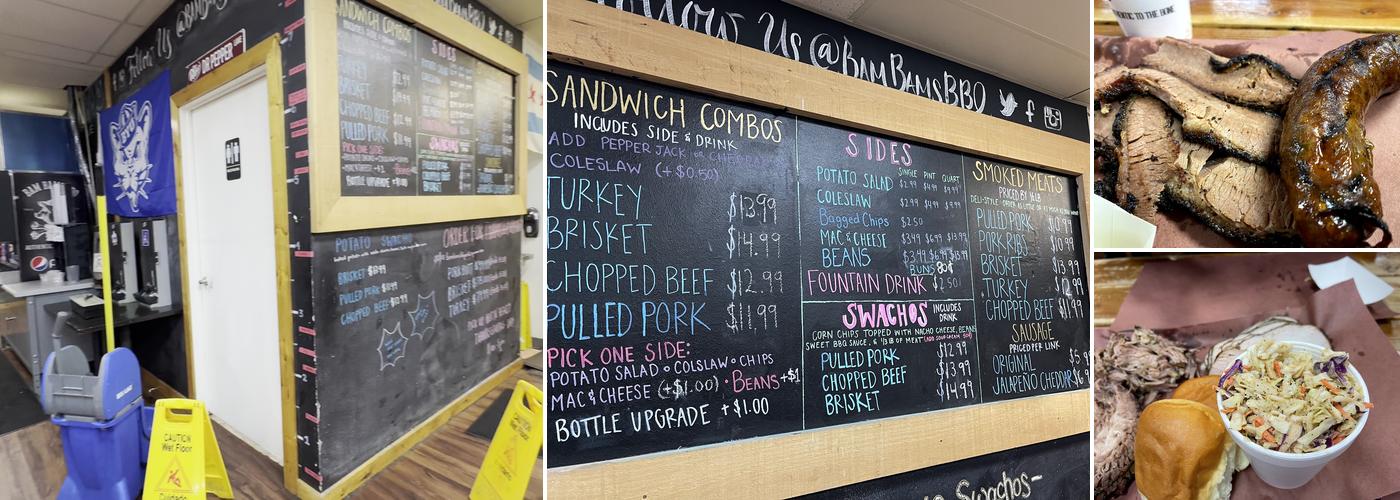 Follow Us @BAMBAMSBBQ
DR PEPPER
SANDWICH COMBOS
SIDES
BRISKET
CHOPPED BEEF
PULLED PORK
PICK ONE SIDE:
BOTTLE UPGRADE
POTATO SWACHOS
ORDER
BRISKET
PULLED PORK
CHOPPED BEEF
BYU
CAUTION
Wet Floor
Cuidado
Follow Us @BAMBAMSBBQ
SANDWICH COMBOS
INCLUDES SIDE & DRINK
ADD PEPPER JACK or CHEDDAR
COLESLAW (+$0.50)
TURKEY $13.99
BRISKET $14.99
CHOPPED BEEF $12.99
PULLED PORK $11.99
PICK ONE SIDE:
POTATO SALAD • COLSLAW • CHIPS
MAC & CHEESE (+$1.00) • BEANS +$1
BOTTLE UPGRADE +$1.00
SIDES
SINGLE PINT QUART
POTATO SALAD $2.99 $4.99 $9.99
COLESLAW $2.99 $4.99 $9.99
Bagged Chips $2.50
MAC & CHEESE $3.49 $6.99 $13.99
BEANS $3.49 $6.99 $13.99
BUNS 80¢
FOUNTAIN DRINK $2.50
SWACHOS INCLUDES DRINK
CORN CHIPS TOPPED WITH NACHO CHEESE, BEANS
SWEET BBQ SAUCE, & 1/3 LB OF MEAT (ADD SOUR CREAM 50¢)
PULLED PORK $12.99
CHOPPED BEEF $13.99
BRISKET $14.99
SMOKED MEATS
PRICED BY ½LB
DELI-STYLE ORDER AS LITTLE OR AS MUCH AS YOU WANT
PULLED PORK $10.99
PORK RIBS $10.99
BRISKET $13.99
TURKEY $12.99
CHOPPED BEEF $11.99
SAUSAGE
PRICED PER LINK
ORIGINAL
JALAPEÑO CHEDDAR
Swachos-
TO THE BONE